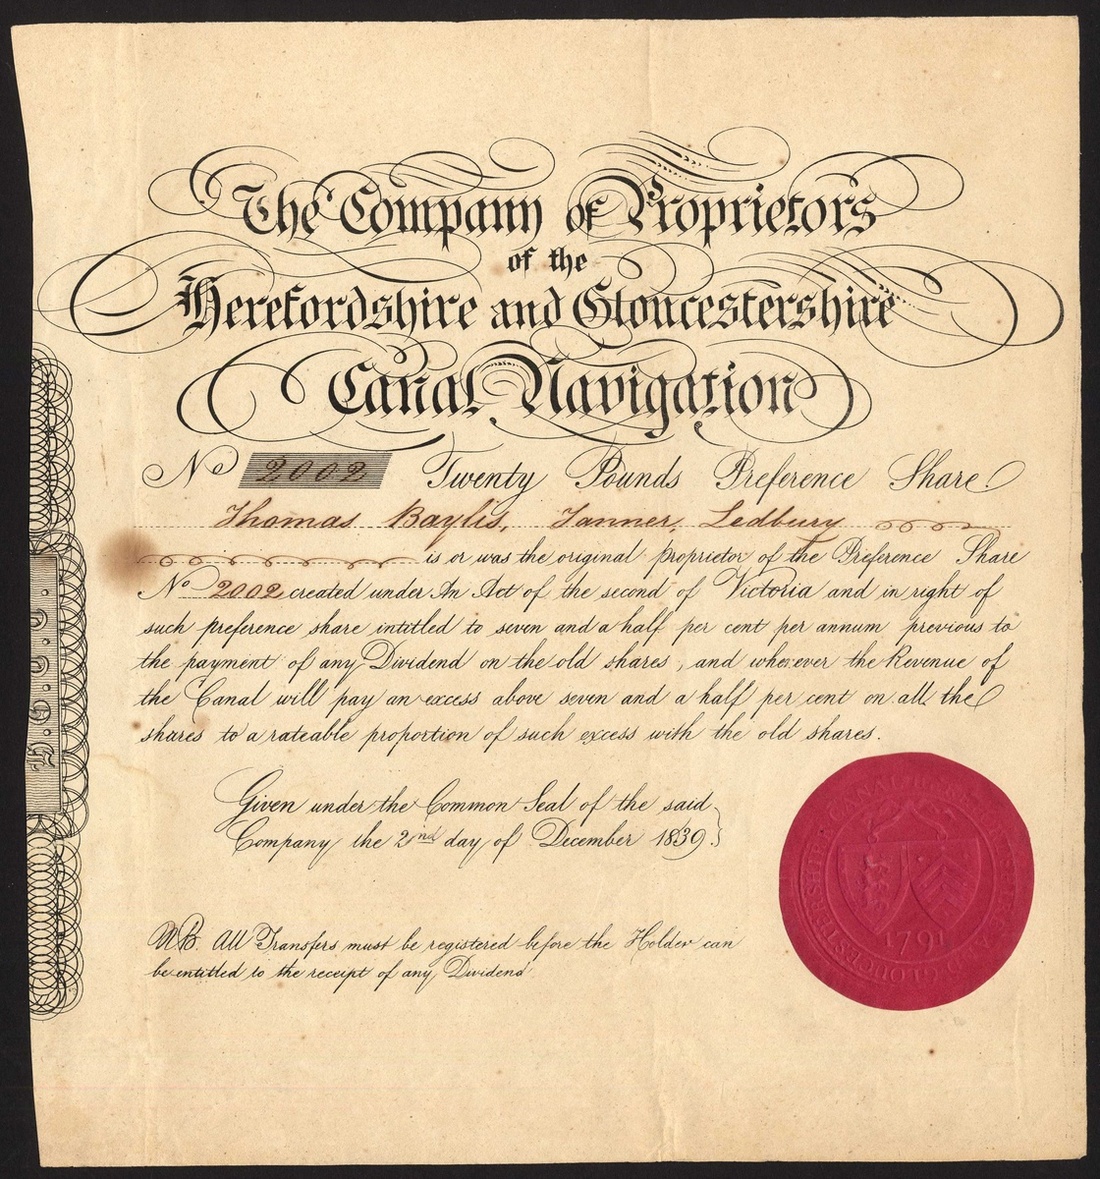 The Company of Proprietors
of the
Herefordshire and Gloucestershire
Canal Navigation
No 2002 Twenty Pounds Preference Share
Thomas Baylis, Tanner, Ledbury
is or was the original proprietor of the Preference Share
No 2002 created under An Act of the second of Victoria and in right of
such preference share intitled to seven and a half per cent per annum previous to
the payment of any Dividend on the old shares, and wherever the Revenue of
the Canal will pay an excess above seven and a half per cent on all the
shares to a rateable proportion of such excess with the old shares.
Given under the Common Seal of the said
Company the 2nd day of December 1839.
NB. All Transfers must be registered before the Holder can
be entitled to the receipt of any Dividend
CANAL
GLOUCESTERSHIRE
1791